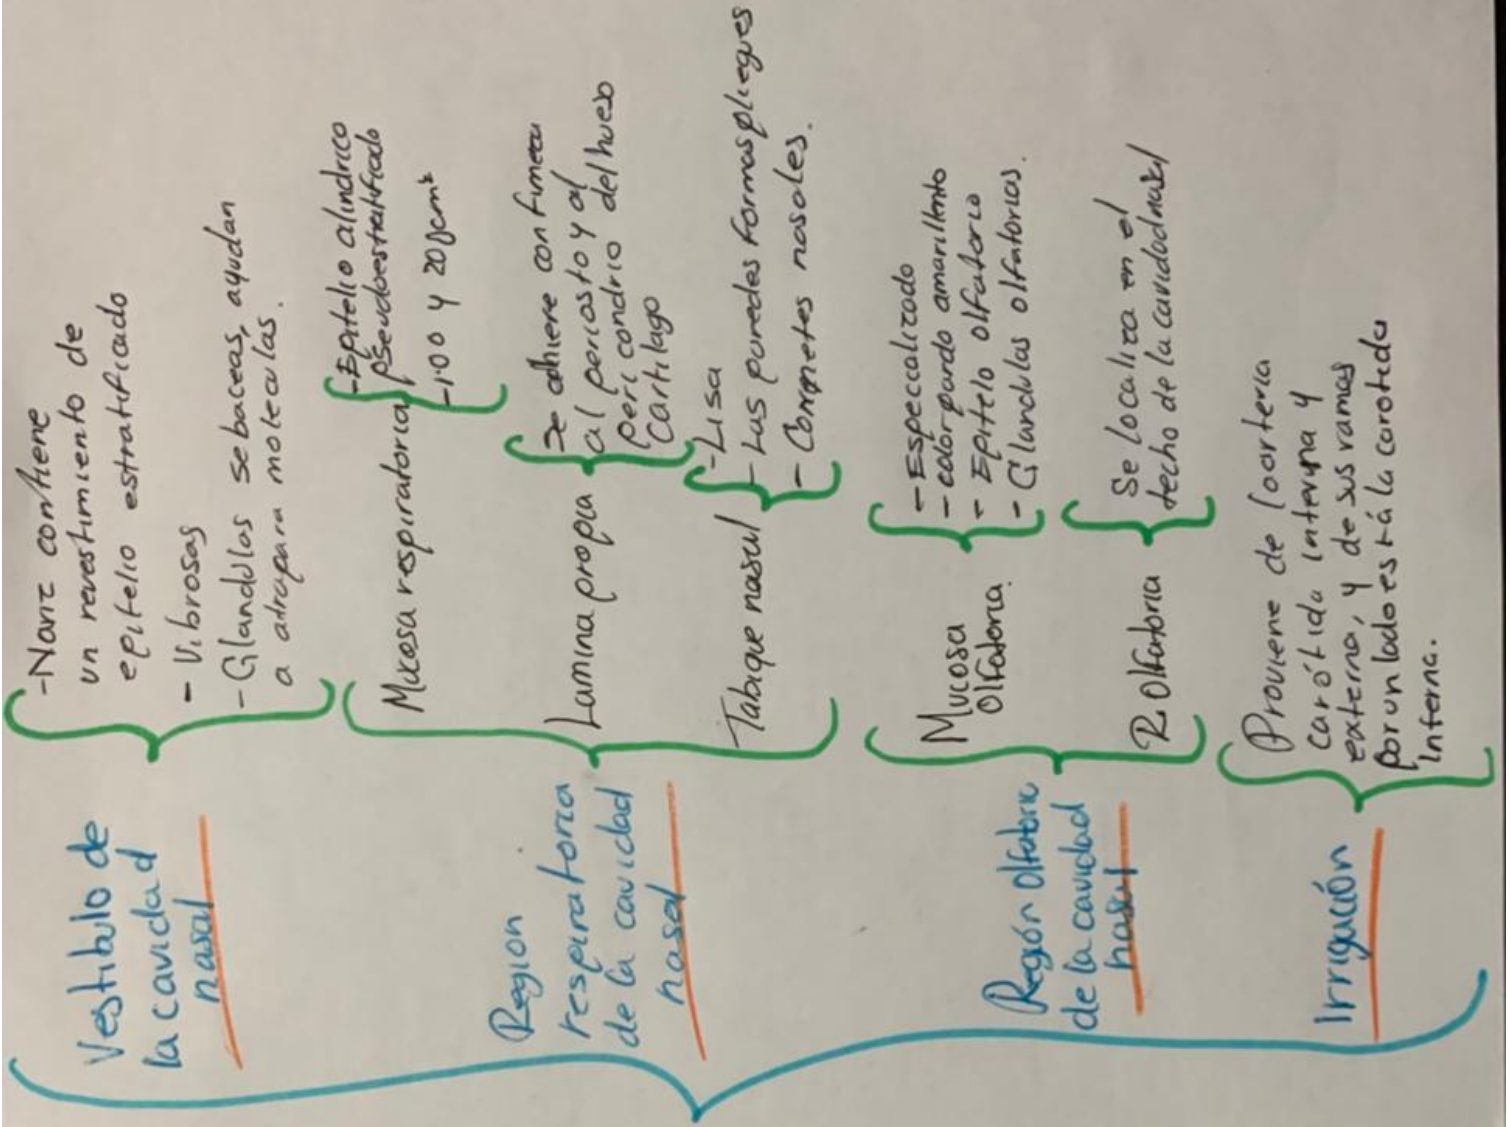 Vestibulo de
la cavidad
nasal
-Nariz contiene
un revestimiento de
epitelio estratificado
- Vibrosas
- Glandulas sebaceas, ayudan
a atrapara moleculas.
Region
respiratoria
de la cavidad
nasal
Mucosa respiratoria
-Epitelio cilindrico
pseudoestratificado
-100 y 200cm²
Lamina propia
Se adhiere con firmeza
al periosto y al
pericondrio del hueso
Cartilago
Tabique nasal
-Lisa
- Las paredes formas pliegues
- Cornetes nasales.
Región Olfatoria
de la cavidad
nasal
Mucosa
Olfatoria.
- Especcalizado
- color pardo amarillento
- Epitelo olfatorio
- Glandulas olfatorias.
R. Olfatoria
Se localiza en el
techo de la cavidad nasal
Irrigación
Proviene de la arteria
carótida interna y
externa, y de sus ramas
por un lado está la caroteda
Interna.